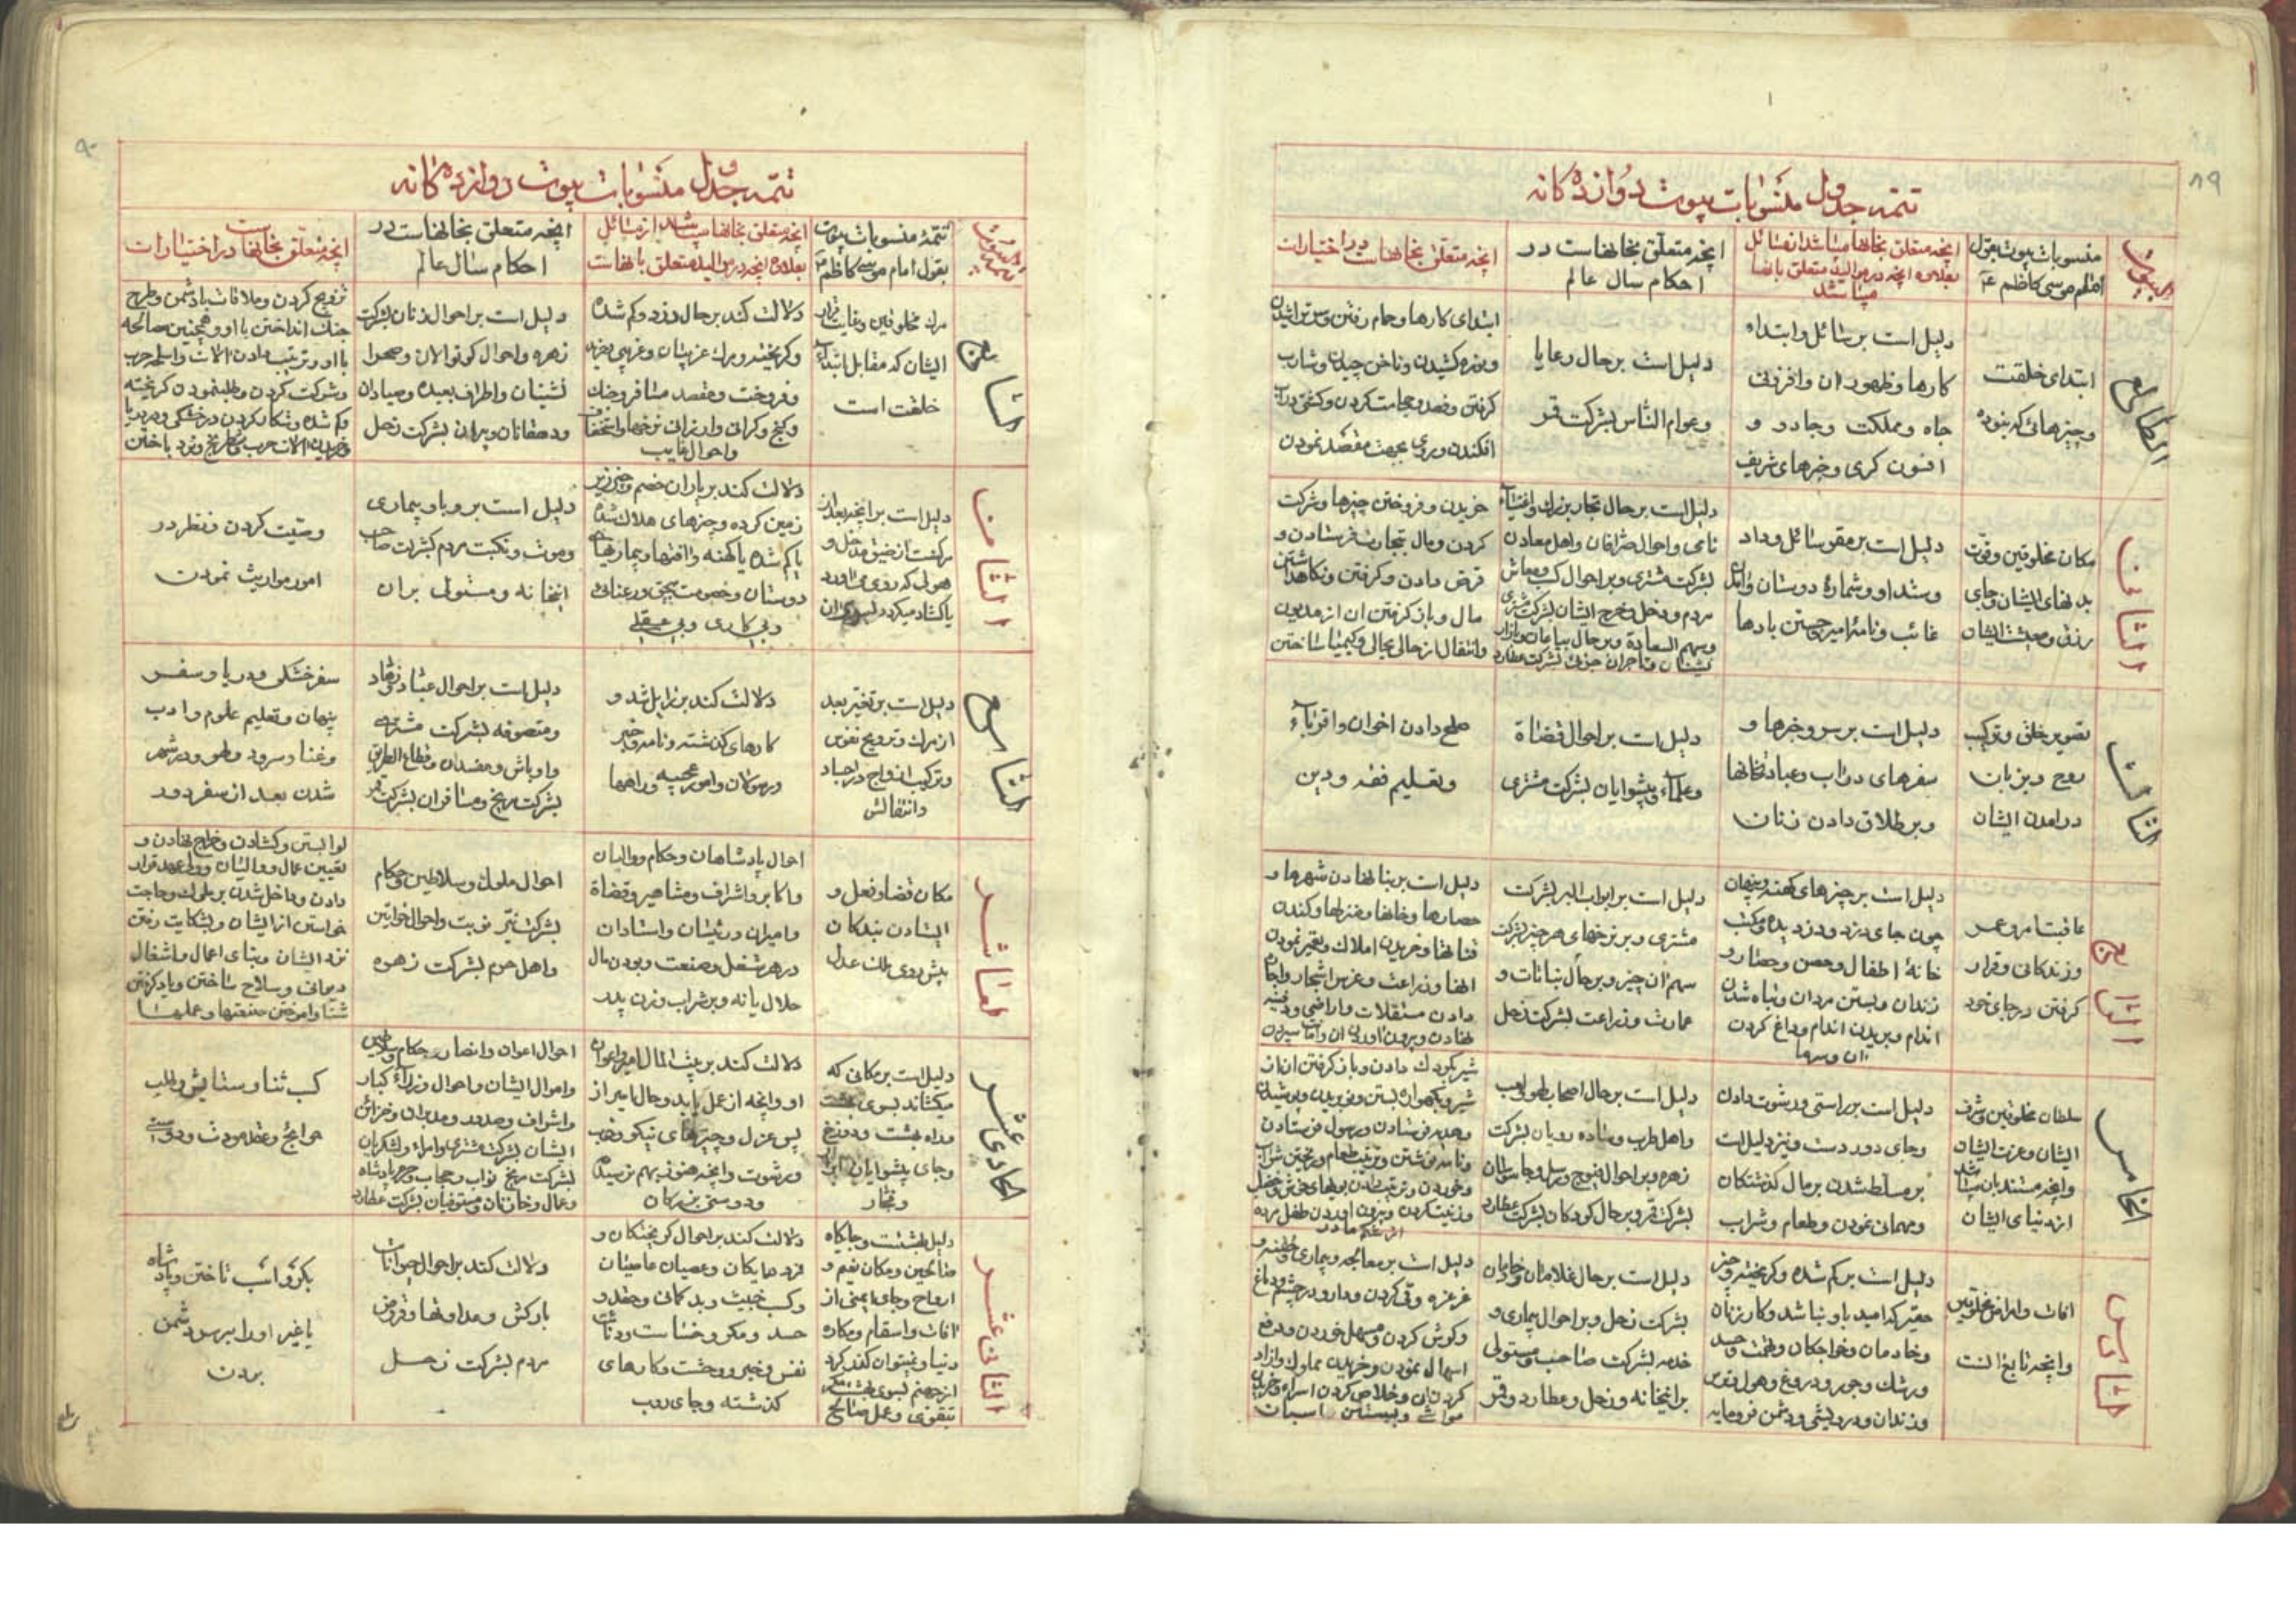 ۸۹
تتمه جدول منسوبات بیوت دوازده کانه
البیوت
منسوبات بیوت بقول
امام موسی کاظم ع
انچه متعلق بخانها میباشد از مسائل
بعلاوه انچه در موالید متعلق بانها
میباشد
انچه متعلق بخانهاست در
احکام سال عالم
انچه متعلق بخانهاست در اختیارات
الطالع
ابتدای خلقت
وچیزهائی که نبوده
دلیل است بر سائل وابتداء
کارها وظهور ان وافزونی
جاه ومملکت وجادو و
افسون کری وخبرهای شریف
دلیل است بر حال رعایا
وعوام الناس بشرکت قمر
ابتدای کارها وحمام رفتن وسر تراشیدن
ونوره کشیدن وناخن چیدن وشارب
کرفتن وفصد وحجامت کردن وکشتی در آب
افکندن و بجهت مقصد نمودن
الثانی
مکان مخلوقین وقوت
بدنهای ایشان وجای
رزق ومعیشت ایشان
دلیل است بر مقو سائل وداد
وستد او وشماره دوستان وامدن
غائب ونامهٔ امیر وجستن بادها
دلیل است بر حال تجار بزرك واغنیاء
نامی واحوال صرافان واهل معادن
بشرکت مشتری وبر احوال کسب ومعاش
مردم ودخل وخرج ایشان بشرکت مشتری
وسهم السعادة وبر حال بیاعان وبازار
نشینان وتاجران جزئی بشرکت عطارد
خریدن وفروختن چیزها وشرکت
کردن ومال بتجارت فرستادن و
قرض دادن وکرفتن ونکاهداشتن
مال وباز کرفتن ان از مدیون
وانتقال از حالی بحالی وکیمیا ساختن
الثالث
تصویر خلق وترکیب
روح وبزبان
درامدن ایشان
دلیل است بر سر وخبرها و
سفرهای دواب وعبادتخانها
وبر طلاق دادن زنان
دلیل است بر احوال قضاة
وعلماء وپیشوایان بشرکت مشتری
صلح دادن اخوان واقرباء
وتعلیم فقه ودین
الرابع
عاقبت امر وعمر
وزندکانی وقرار
کرفتن در جای خود
دلیل است بر چیزهای کهنه وپنهان
چون جای دزد ودزدیده ومکتب
خانهٔ اطفال وحصن وحصار و
زندان وبستن مردان وتباه شدن
اندام وبریدن اندام وداغ کردن
دلیل است بر ابواب البر بشرکت
مشتری وبر نرخهای هر چیز بشرکت
سهم ان چیز وبر حال نباتات و
عمارت وزراعت بشرکت زحل
دلیل است بر بنا نهادن شهرها و
حصارها وخانها ومنزلها وکندن
قناتها وخریدن املاك وتعمیر نمودن
انها وزراعت وغرس اشجار واجاره
دادن مستقلات واراضی ودفینه
نهادن وبیرون اوردن ان وامانت سپردن
الخامس
سلطان مخلوقین وشرف
ایشان وعزت ایشان
وانچه مستند بان باشد
از دنیای ایشان
دلیل است بر راستی ورشوت دادن
وجای دور دست ونیز دلیل است
بر مسلط شدن بر مال کذشتکان
ومهمانی نمودن وطعام وشراب
دلیل است بر حال اصحاب لهو ولعب
واهل طرب وساده رویان بشرکت
زهره وبر احوال فیوج ورسل وجاسوسان
بشرکت قمر وبر حال کودکان بشرکت عطارد
شیر بکودك دادن وباز کرفتن ان از
شیر وبکهواره بستن ونو بریدن وپوشیدن
وهدیه فرستادن ورسول فرستادن
ونامه نوشتن وترتیب طعام وریختن شراب
وخوردن وترتیب دادن بویهای خوش وخضاب
وزینت کردن وبیرون اوردن طفل مرده
از شکم مادر
السادس
افات وامراض مخلوقین
وانچه تابع انست
دلیل است بر کم شده وکریخته وچیز
حقیر که امید باو نباشد وکار زنان
وخادمان وخواجکان وتهمت وحسد
ورشك وجور ودروغ وهول وترس
وزندان ودرویشی ودشمن فرومایه
دلیل است بر حال غلامان وخادمان
بشرکت زحل وبر احوال بیماری و
خدمه بشرکت صاحب ومستولی
بر اینخانه وزحل وعطارد وقمر
دلیل است بر معالجه وبیماری وحقنه و
غرغره وقی کردن ودارو در چشم وداغ
وکوش کردن ومسهل خوردن ودفع
اسهال نمودن وخریدن مملوك وازاد
کردن ان وخلاص کردن اسراء وخریدن
مواشی وبستن اسبان
۹۰
تتمه جدول منسوبات بیوت دوازده کانه
تتمهٔ منسوبات بیوت
بقول امام موسی کاظم ع
انچه متعلق بخانها میباشد از مسائل
بعلاوه انچه در موالید متعلق بانهاست
انچه متعلق بخانهاست در
احکام سال عالم
انچه متعلق بخانهاست در اختیارات
السابع
مرك مخلوقین وغایت قرار
ایشان که مقابل ابتداء
خلقت است
دلالت کند بر حال دزد وکم شده
وکریخته ومرك عزیزان وغریبی وخرید
وفروخت ومقصد مسافر وجنك
وکنج وکرانی وارزانی نرخها واستخفاف
واحوال غایب
دلیل است بر احوال زنان بشرکت
زهره واحوال کوتوالان وصحرا
نشینان واطراف بعیده وصیادان
ودهقانان وپیران بشرکت زحل
تزویج کردن وملاقات با دشمن وطرح
جنك انداختن با او وهمچنین مصالحه
با او وترتیب دادن الات واسلحه حرب
وشرکت کردن وطلب نمودن کریخته
وکم شده وشکار کردن در خشکی ودریا
وخریدن الات حرب وشطرنج ونرد باختن
الثامن
دلیل است بر انچه بعد از
مرکست از ضیق مدخل و
هولی که روی می اورد
یا کشاد میکردد بسوی ان
دلالت کند بر یاران خصم وچیز زیر
زمین کرده وچیزهای هلاك شده
یا کم شده یا کهنه وافتها وبیماریهای
دوستان وخصومت بیحق ورعنائی
وبی کاری وبی عقلی
دلیل است بر وبا وبیماری
وموت ونکبت مردم بشرکت صاحب
اینخانه ومستولی بران
وصیت کردن ونظر در
امور مواریث نمودن
التاسع
دلیل است بر تغیر بعد
از مرك وترویج نفوس
وترکیب ازواج در اجساد
وانتقالش
دلالت کند بر زایل شد و
کارهای کذشته ونامه وخبر
ورسولان وامور عجیبه وراهها
دلیل است بر احوال عباد وزهاد
ومتصوفه بشرکت مشتری
واوباش ومفسدان وقطاع الطریق
بشرکت مریخ ومسافران بشرکت قمر
سفر خشکی ودریا وسفر
پنهان وتعلیم علوم وادب
وغنا وسرود ولهو ودر شهر
شدن بعد از سفر دور
العاشر
مکان قضا وفعل و
ایستادن بندکان
پیش روی ملك عدل
احوال پادشاهان وحکام ووالیان
واکابر واشراف ومشاهیر وقضاة
وامیران ورئیسان واستادان
در هر شغل وصنعت وبودن مال
حلال یا نه وبر شراب وزن پدر
احوال ملوك وسلاطین وحکام
بشرکت نیر نوبت واحوال خواتین
واهل حرم بشرکت زهره
لوا بستن وکشادن وخراج نهادن و
تعیین عمال ووالیان وولیعهد قرار
دادن وداخل شدن بر ملوك وحاجت
خواستن از ایشان وبشکایت رفتن
نزد ایشان وبنای اعمال واشغال
دیوانی وسلاح ساختن ویاد کرفتن
شنا واموختن صنعتها وعملها
الحادی عشر
دلیل است بر مکانی که
میکشاند بسوی بهشت
وراه بهشت ودوزخ
وجای پیشوایان
وفجار
دلالت کند بر بیت المال امیر واعوان
او وانچه از عمل یابد وحال امیر از
پس عزل وچیزهای نیکو وخوب
ورشوت وانچه هنوز بهم نرسیده
ودوستی بزرکان
احوال اعوان وانصار حکام وسلاطین
واموال ایشان واحوال وزراء کبار
واشراف وصدور ومدبران وخزائن
ایشان بشرکت مشتری وامراء ولشکریان
بشرکت مریخ نواب وحجاب وحرم پادشاه
وعمال وخازنان ومستوفیان بشرکت عطارد
کسب ثنا وستایش وطلب
حوائج وعقد مودت ودوستی
الثانی عشر
دلیل بهشت وجایکاه
صالحین ومکان نعیم و
ارواح وجای ایمنی از
افات واسقام ومکاره
دنیا ونمیتوان کذر کرد
از جهنم بسوی بهشت مکر
بتقوی وعمل صالح
دلالت کند بر احوال کریختکان و
فرومایکان وعصیان عاصیان
وکسب خبیث وبد کمانی وحقد و
حسد ومکر وخساست ودنائت
نفس وخبر ووحشت وکارهای
کذشته وجای
دلالت کند بر احوال حیوانات
بارکش ومداومتها وقروض
مردم بشرکت زحل
بکرو اسب تاختن وپادشاه
یا غیر او را بر سر دشمن
بردن